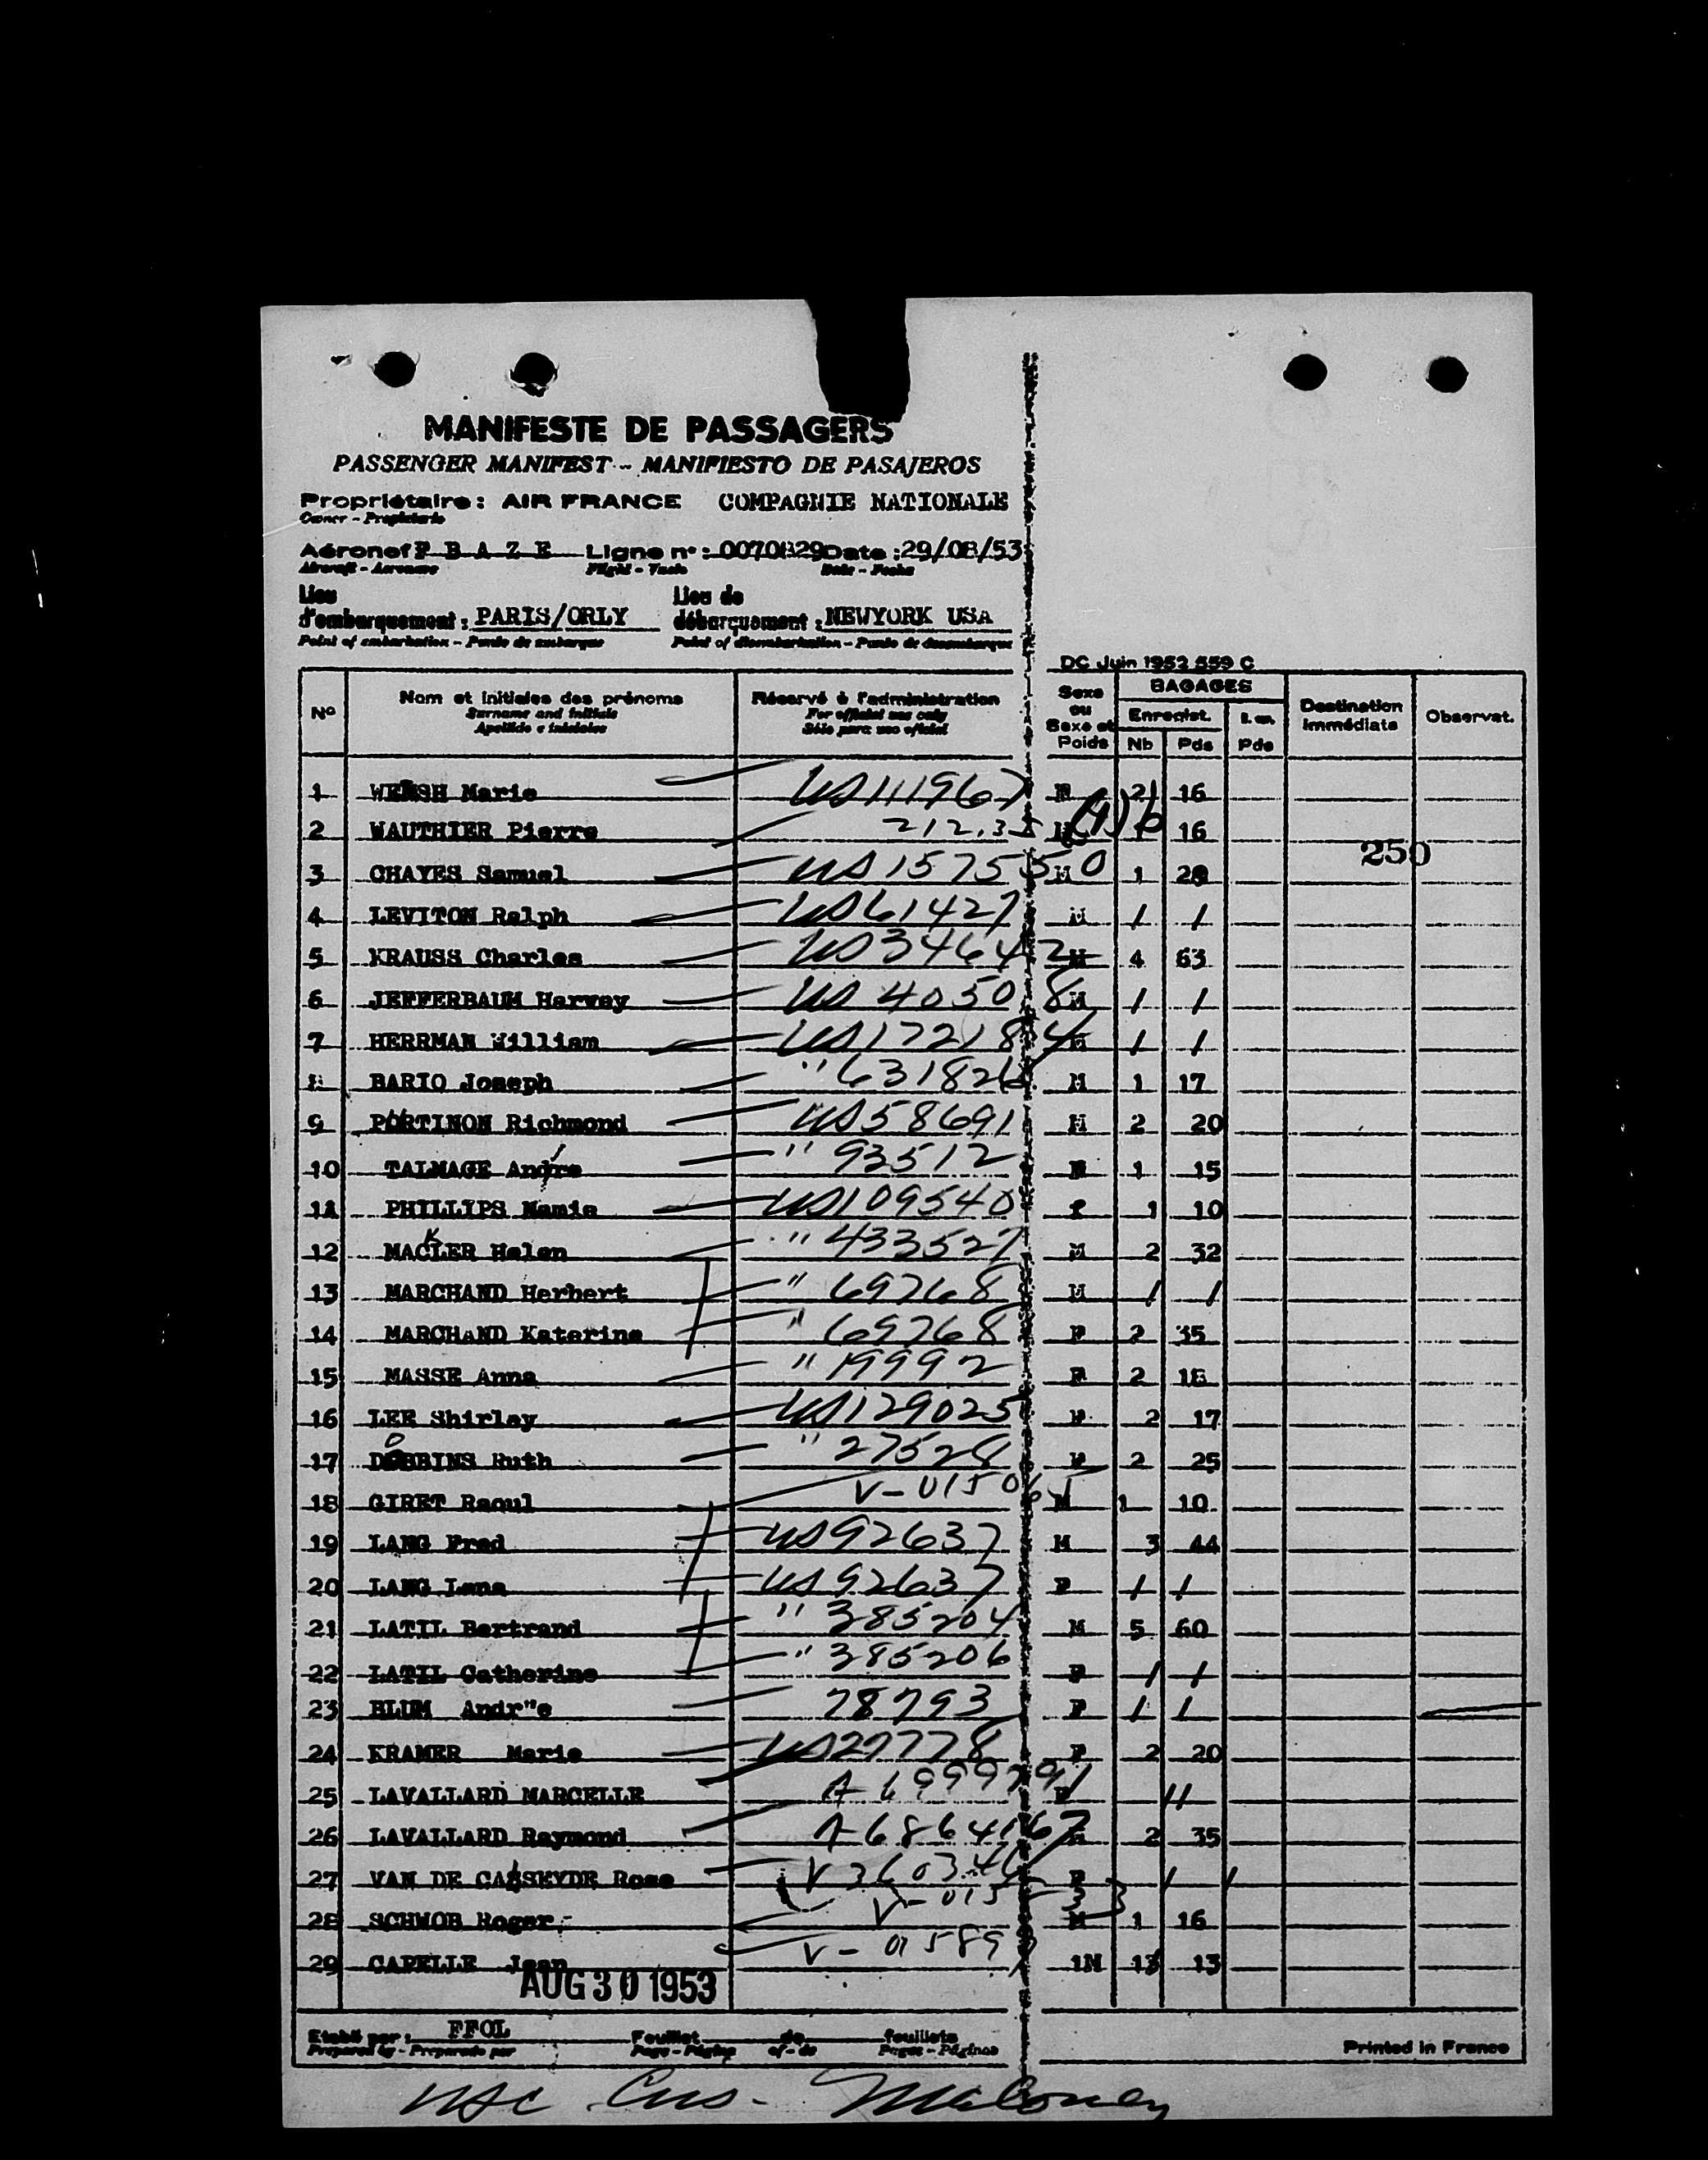 MANIFESTE DE PASSAGERS
PASSENGER MANIFEST - MANIFIESTO DE PASAJEROS
Propriétaire : AIR FRANCE COMPAGNIE NATIONALE
Owner - Propietario
Aéronef F B A Z E Ligne n° : 0070829 Date : 29/08/53
Aircraft - Aeronave Flight - Vuelo Date - Fecha
Lieu d'embarquement : PARIS/ORLY Lieu de débarquement : NEWYORK USA
Point of embarkation - Punto de embarque Point of disembarkation - Punto de desembarque
DC Juin 1952 559 C
N° Nom et initiales des prénoms Réservé à l'administration Sexe ou Sexe et Poids BAGAGES Destination immédiate Observat.
Surname and initials For official use only Enregist.
Apellido e iniciales Sólo para uso oficial Nb Pds Pds
1 Marie US 111967 2 16
2 WAUTHIER Pierre 16
250
3 CHAYES Samuel US 157550 M 1
4 LEVITON Ralph US 61427 M / /
5 KRAUSS Charles US 34642 M 4 63
6 JEFFERBAUM Harvey US 40508 M / /
7 HERRMAN William US 172184 / /
8 BARIO Joseph " 631826 M 1 17
9 PORTINON Richmond US 58691 M 2 20
10 TALMAGE Andre " 93512 1 15
11 PHILLIPS Mamie US 109540 f 1 10
12 MACKLER Helen " 433527 M 2 32
13 MARCHAND Herbert " 69768 M / /
14 MARCHAND Katerine " 69768 F 2 35
15 MASSE Anna " 19992 F 2 18
16 LEE Shirley US 129025 F 2 17
17 DOBBINS Ruth " 27528 F 2 25
18 GIRET Raoul M 1 10
19 LANG Fred US 92637 M 3 44
20 LANG Lena US 92637 F / /
21 LATIL Bertrand " 385204 M 5 60
22 LATIL Catherine " 385206 F / /
23 BLUM Andr"e 78793 F / /
24 KRAMER Marie US 27778 F 2 20
25 LAVALLARD MARCELLE F //
26 LAVALLARD Raymond A-6864167 2 35
27 VAN DE CASSEYDE Rose F / /
28 SCHWOB Roger M 1 16
29 CAPELLE Jean V-01589 1M 13 13
AUG 30 1953
Etabli par : FFOL Feuillet de feuillets
Prepared by - Preparado por Page - Página of - de Pages - Páginas
Printed in France